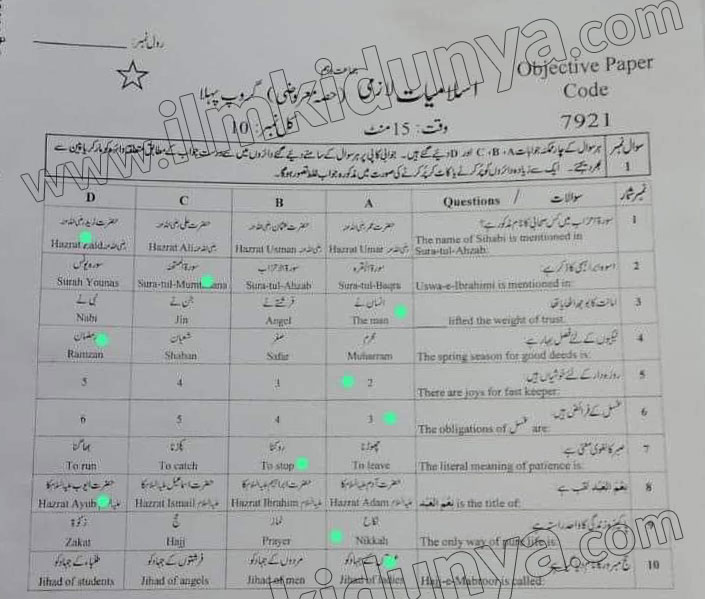 رول نمبر:
جماعت نہم
اسلامیات لازمی (حصہ معروضی) گروپ پہلا
Objective Paper
Code
7921
وقت: 15 منٹ
کل نمبر: 10
www.ilmkidunya.com
سوال نمبر 1
ہر سوال کے چار ممکنہ جوابات A، B، C اور D دیئے گئے ہیں۔ جوابی کاپی پر ہر سوال کے سامنے دیئے گئے دائروں میں سے درست جواب کے مطابق متعلقہ دائرہ کو مارکر یا پین سے
بھر دیجئے۔ ایک سے زیادہ دائروں کو پُر کرنے یا کاٹ کر پُر کرنے کی صورت میں مذکورہ جواب غلط تصور ہوگا۔
D C B A Questions / سوالات نمبر شمار
1 سورۃ احزاب میں کس صحابی کا نام مذکور ہے؟
حضرت عمر رضی اللہ عنہ حضرت عثمان رضی اللہ عنہ حضرت علی رضی اللہ عنہ حضرت زید رضی اللہ عنہ
Hazrat Zaid Hazrat Ali رضی اللہ عنہ Hazrat Usman رضی اللہ عنہ Hazrat Umar رضی اللہ عنہ The name of Sihabi is mentioned in
Sura-tul-Ahzab:
2 اسوہ ابراہیمی کا ذکر ہے:
سورۃ البقرہ سورۃ الاحزاب سورۃ الممتحنہ سورہ یونس
Surah Younas Sura-tul-Mumt Sura-tul-Ahzab Sura-tul-Baqra Uswa-e-Ibrahimi is mentioned in:
3 امانت کا بوجھ اٹھایا تھا
انسان نے فرشتے نے جن نے نبی نے
Nabi Jin Angel The man ____ lifted the weight of trust.
4 نیکیوں کے لئے فصل بہار ہے:
محرم صفر شعبان رمضان
Ramzan Shaban Safar Muharram The spring season for good deeds is:
5 روزہ دار کے لئے خوشیاں ہیں:
5 4 3 2 There are joys for fast keeper:
6 غسل کے فرائض ہیں:
6 5 4 3 The obligations of غسل are:
7 صبر کا لغوی معنی ہے
چھوڑنا روکنا پکڑنا بھاگنا
To run To catch To stop To leave The literal meaning of patience is:
8 نعم العبد لقب ہے:
حضرت آدم علیہ السلام کا حضرت ابراہیم علیہ السلام کا حضرت اسماعیل علیہ السلام کا حضرت ایوب علیہ السلام کا
Hazrat Ayub Hazrat Ismail علیہ السلام Hazrat Ibrahim علیہ السلام Hazrat Adam علیہ السلام نعم العبد is the title of:
9 پاکیزہ زندگی کا واحد راستہ ہے
نکاح نماز حج زکوٰۃ
Zakat Hajj Prayer Nikkah The only way of pure life is:
10 حج مبرور کا نام دیا گیا ہے
عورتوں کے جہاد کو مردوں کے جہاد کو فرشتوں کے جہاد کو طلباء کے جہاد کو
Jihad of students Jihad of angels Jihad of men Jihad of ladies Hajj-e-Mabroor is called:
www.ilmkidunya.com